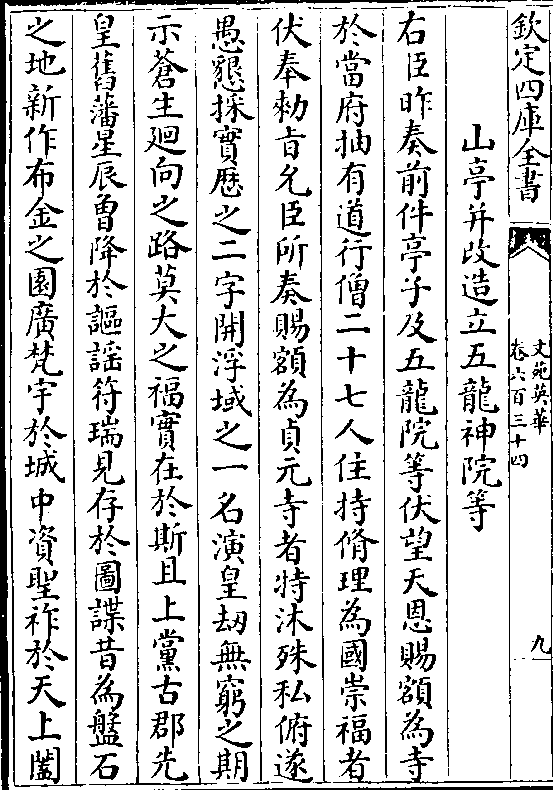 欽定四庫全書
文苑英華
卷六百三十四
九
山亭并改造立五龍神院等
右臣昨奏前件亭子及五龍院等伏望天恩賜額為寺
於當府抽有道行僧二十七人住持脩理為國崇福者
伏奉勅㫖允臣所奏賜額為貞元寺者特沐殊私俯遂
愚懇採寳厯之二字開浮域之一名演皇刼無窮之期
示蒼生廻向之路莫大之福實在於斯且上黨古郡先
皇舊藩星辰曾降於謳謡符瑞見存於圖諜昔為盤石
之地新作布金之園廣梵宇於城中資聖祚於天上闔